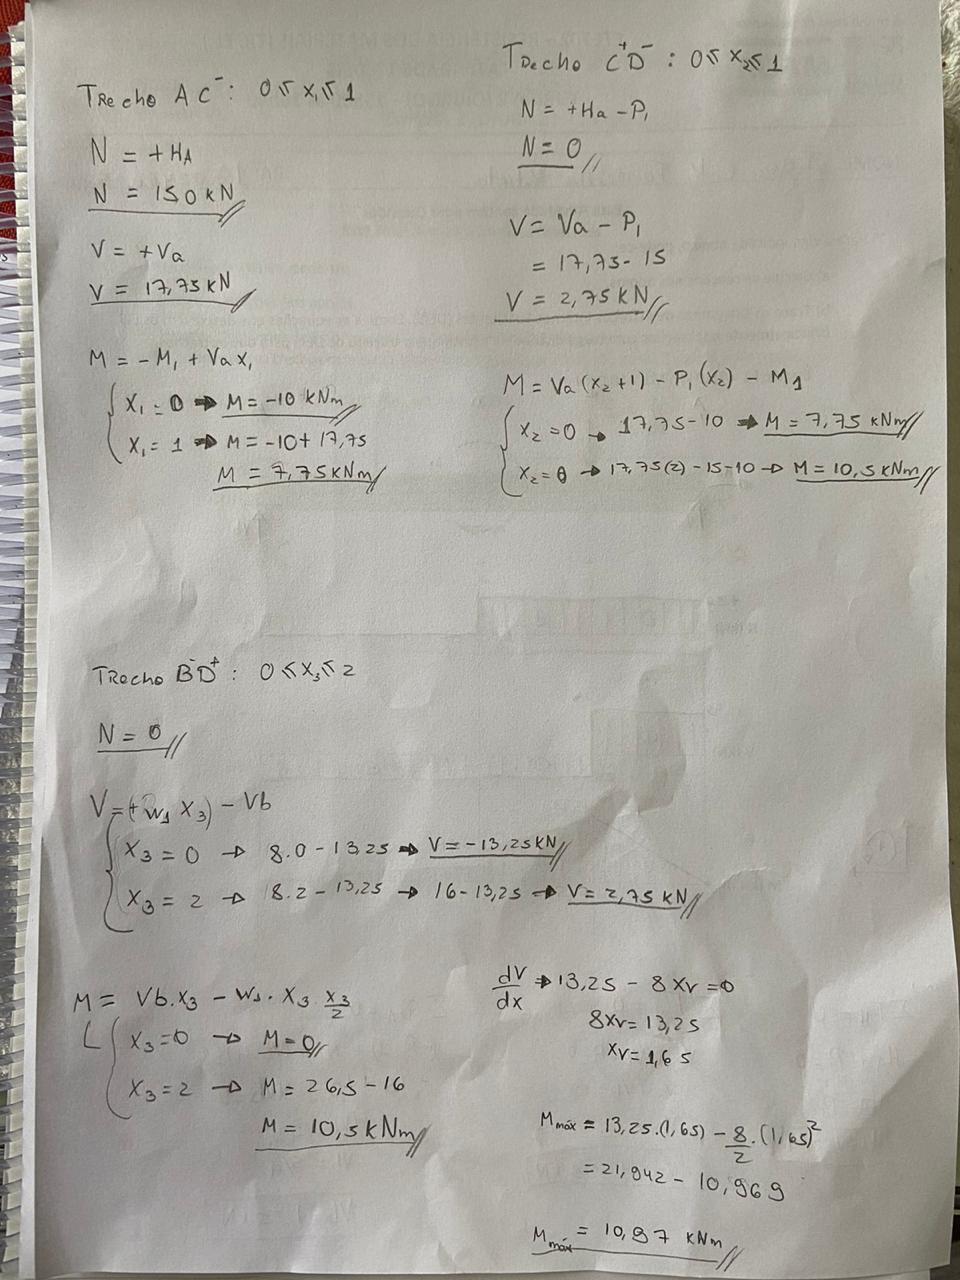 Trecho AC⁻: 0 ≤ x₁ ≤ 1
N = +HA
N = 150 kN
V = +Va
V = 17,75 kN
M = -M₁ + Va x₁
x₁ = 0 → M = -10 kNm
x₁ = 1 → M = -10 + 17,75
M = 7,75 kNm
Trecho C⁺D⁻ : 0 ≤ x₂ ≤ 1
N = +Ha - P₁
N = 0
V = Va - P₁
= 17,75 - 15
V = 2,75 kN
M = Va (x₂+1) - P₁ (x₂) - M1
x₂ = 0 → 17,75 - 10 → M = 7,75 kNm
x₂ = 0 → 17,75(2) - 15 - 10 → M = 10,5 kNm
Trecho B⁻D⁺ : 0 ≤ x₃ ≤ 2
N = 0
V = (+ w1 x₃) - Vb
x₃ = 0 → 8.0 - 13,25 → V = -13,25 kN
x₃ = 2 → 8.2 - 13,25 → 16 - 13,25 → V = 2,75 kN
M = Vb.x₃ - w1. x₃ x₃/2
x₃ = 0 → M = 0
x₃ = 2 → M = 26,5 - 16
M = 10,5 kNm
dV/dx → 13,25 - 8xv = 0
8xv = 13,25
xv = 1,65
Mmáx = 13,25.(1,65) - 8/2.(1,65)²
= 21,942 - 10,969
Mmáx = 10,97 kNm